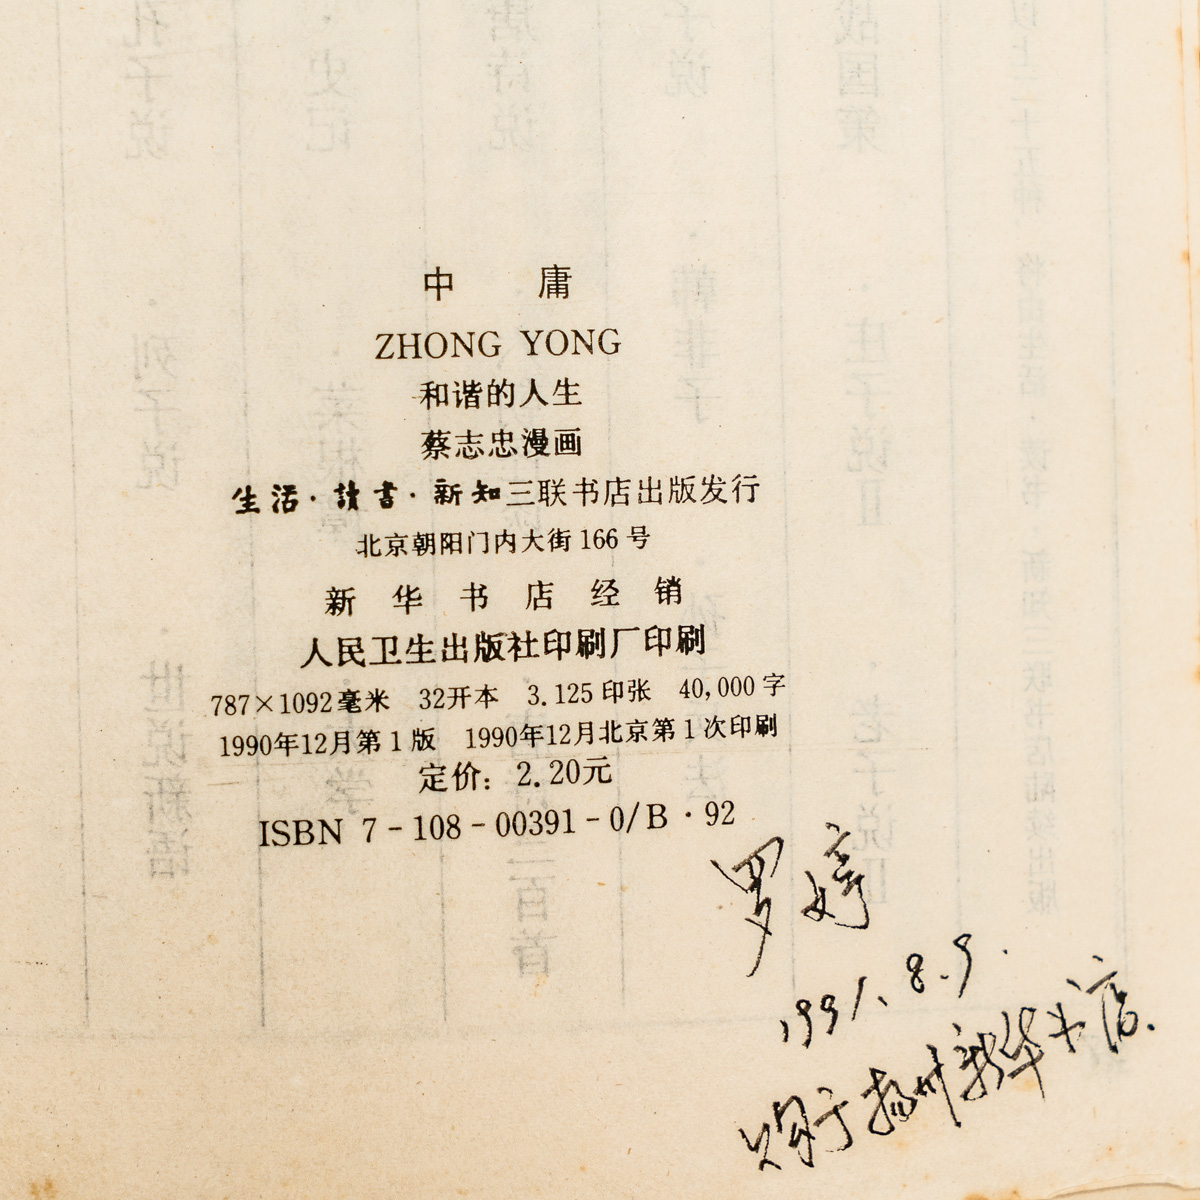 中 庸
ZHONG YONG
和谐的人生
蔡志忠漫画
生活·讀書·新知三联书店出版发行
北京朝阳门内大街166号
新华书店经销
人民卫生出版社印刷厂印刷
787×1092毫米 32开本 3.125印张 40,000字
1990年12月第1版 1990年12月北京第1次印刷
定价：2.20元
ISBN 7-108-00391-0/B·92
罗婷
1991.8.9.
购于扬州新华书店.